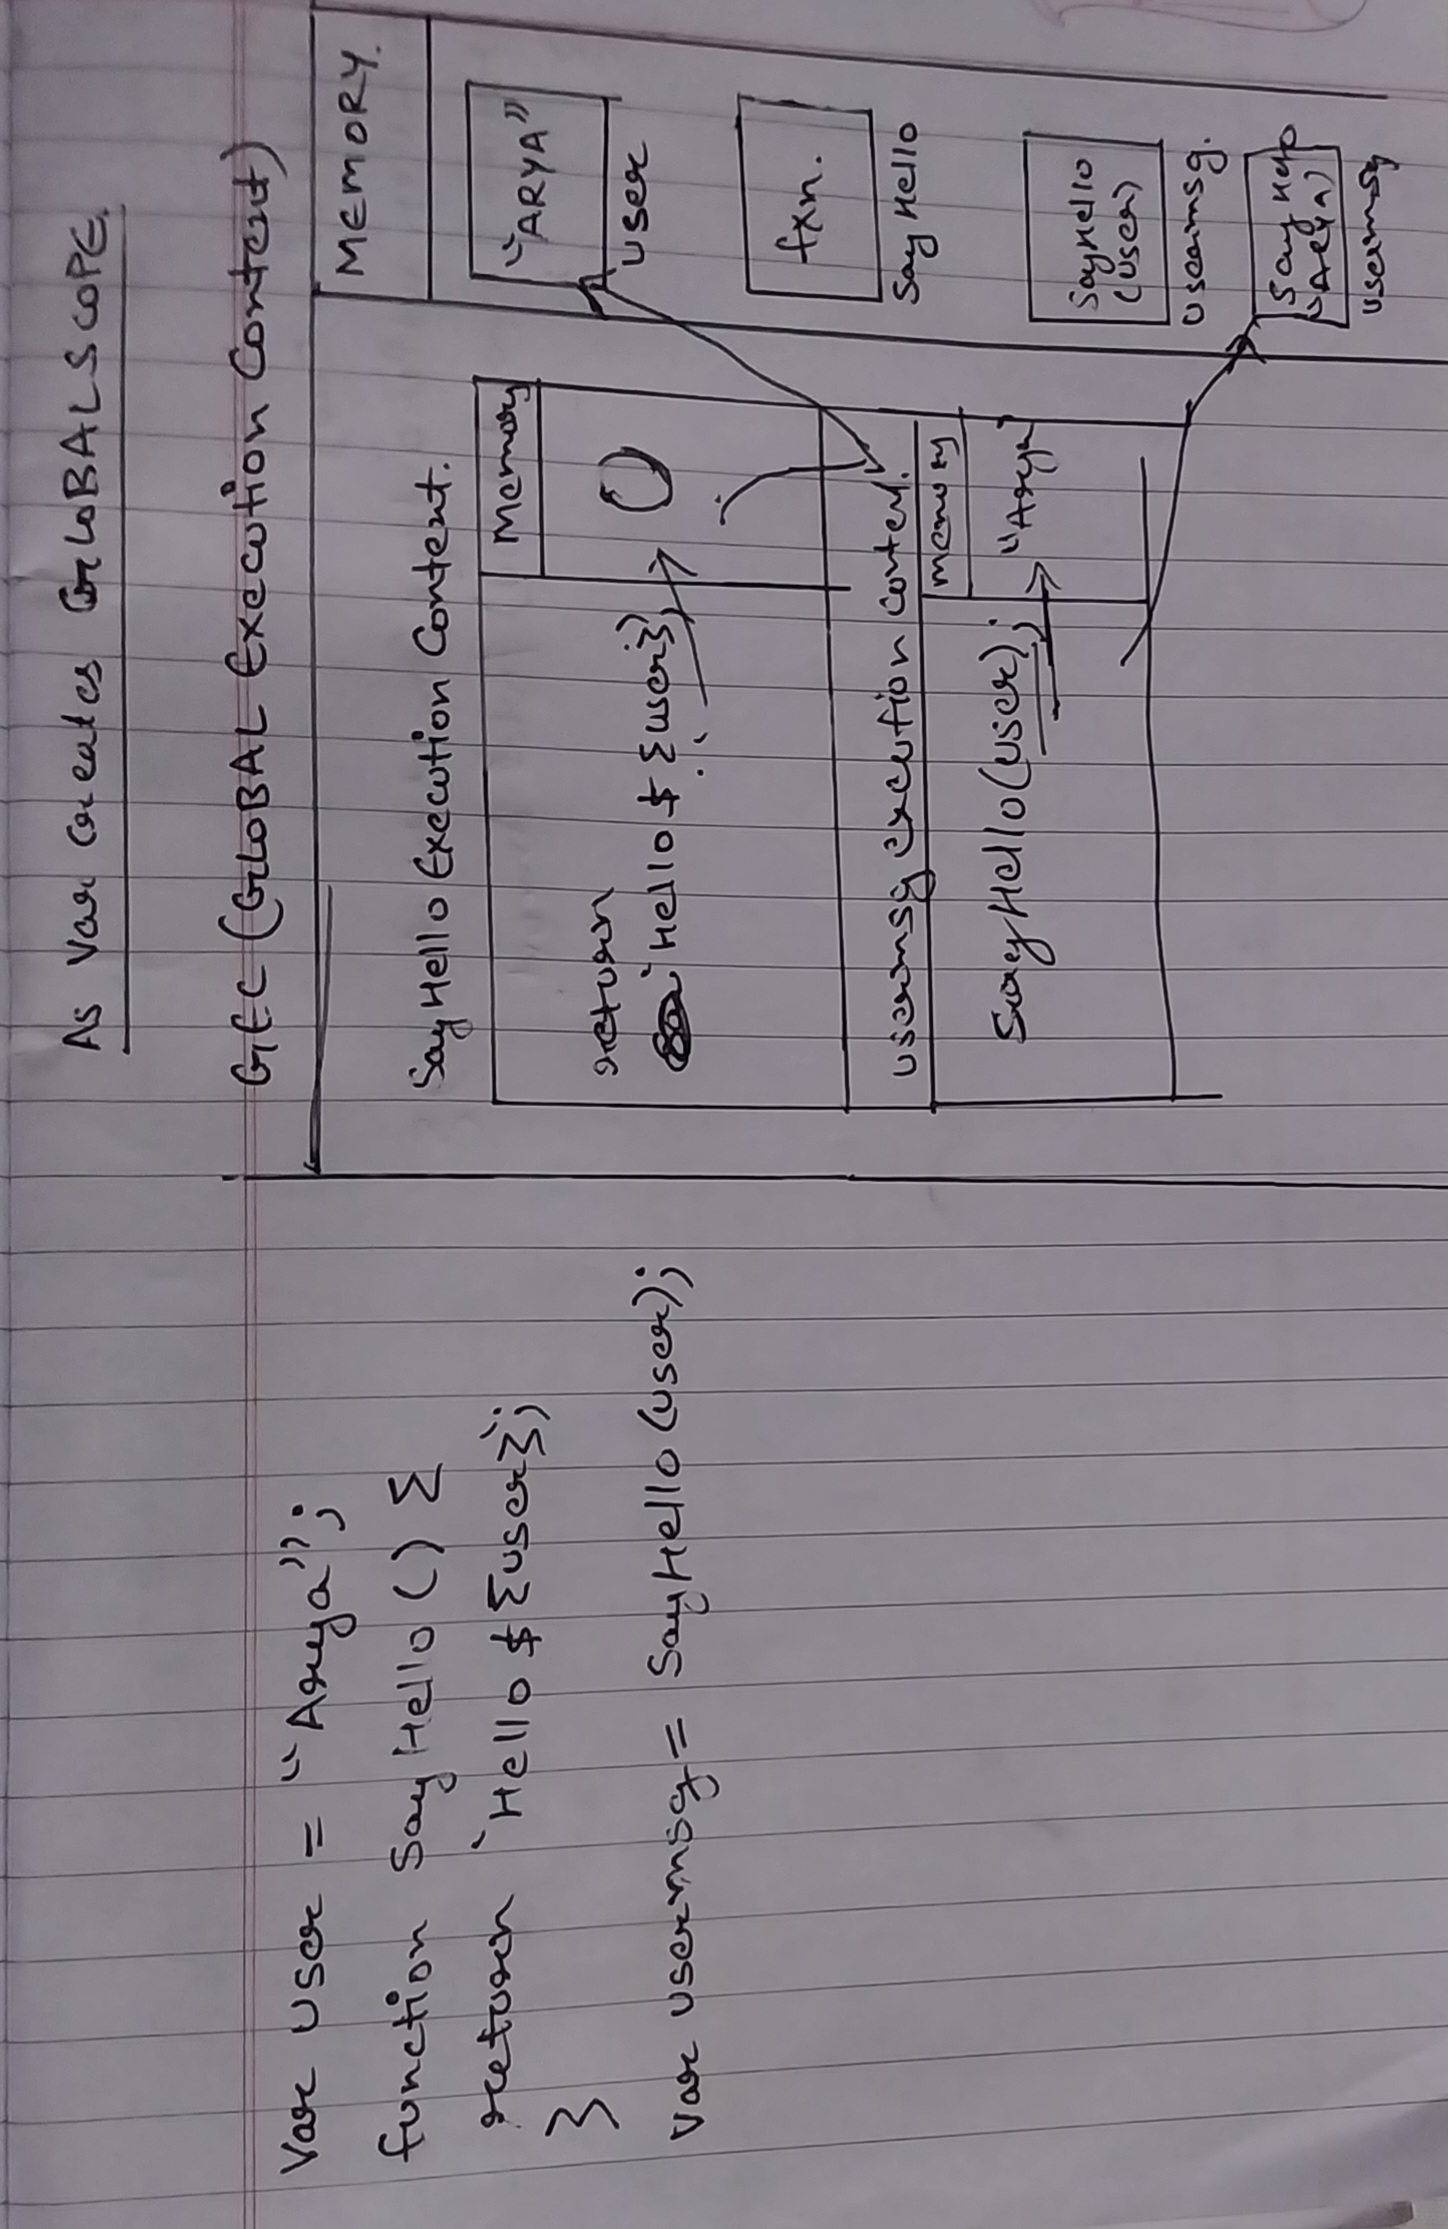 As Var creates GLOBAL SCOPE.
Var user = "Arya";
function SayHello () {
return `Hello ${user}`;
}
var usermsg = SayHello (user);
GEC (GLOBAL Execution Context)
MEMORY.
SayHello Execution Context.
Memory
return
`Hello ${user}`;
O
"ARYA"
user
fxn.
SayHello
usermsg execution context.
memory
SayHello(user);
"Arya
SayHello
(user)
usermsg.
Say Hello
"Arya)
usermsg